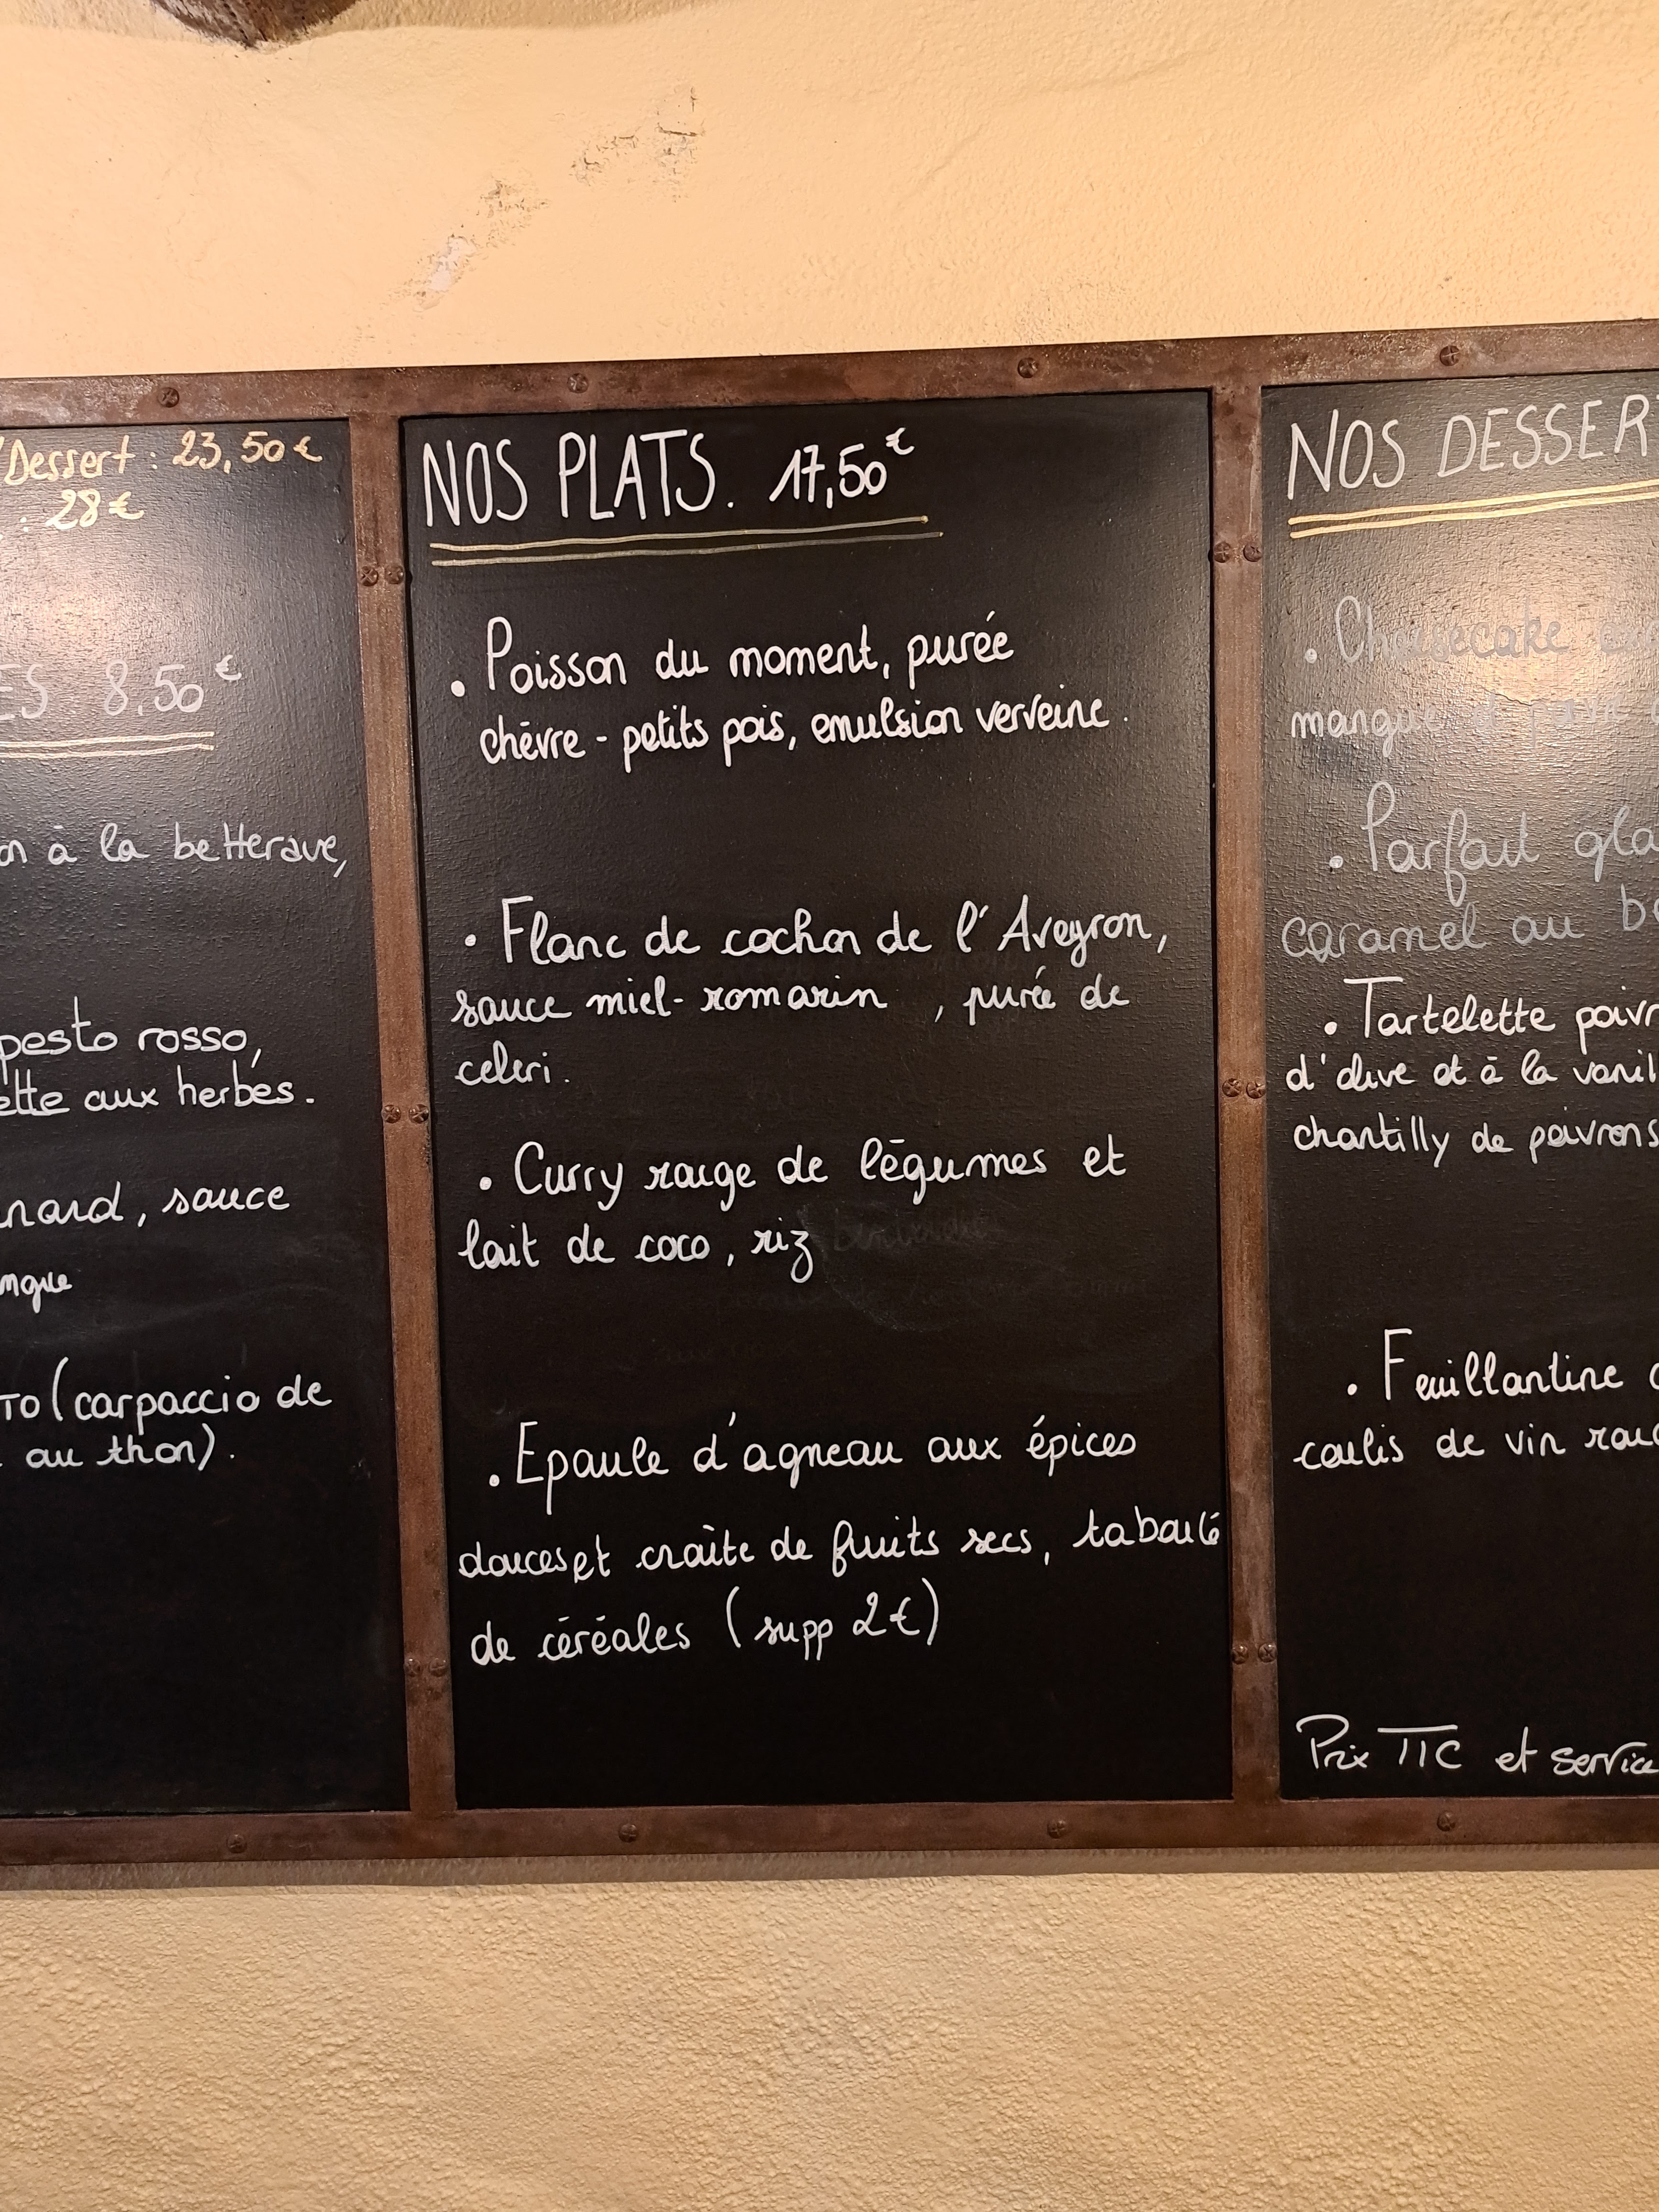 Dessert : 23,50 €
: 28 €
ES 8,50 €
on à la betterave,
pesto rosso,
ette aux herbes.
nard, sauce
ngue
TO (carpaccio de
au thon).
NOS PLATS. 17,50 €
• Poisson du moment, purée
chèvre - petits pois, emulsion verveine.
• Flanc de cochon de l'Aveyron,
sauce miel-romarin , purée de
celeri.
• Curry rouge de légumes et
lait de coco, riz
• Epaule d'agneau aux épices
douces et croûte de fruits secs, taboulé
de céréales (supp 2€)
NOS DESSER
• Cheesecake
mangue
• Parfait gla
caramel au b
• Tartelette poivr
d'olive et à la vanil
chantilly de poivrons
• Feuillantine
coulis de vin rou
Prix TTC et service